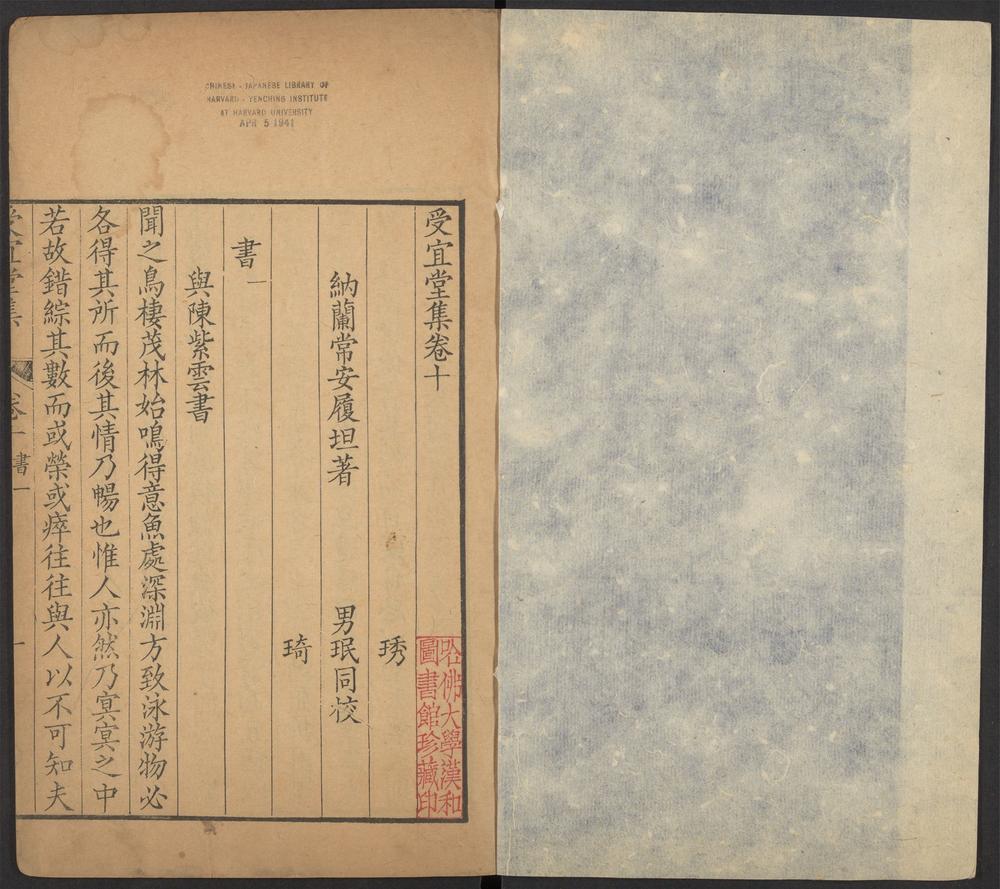 CHINESE - JAPANESE LIBRARY OF
HARVARD - YENCHING INSTITUTE
AT HARVARD UNIVERSITY
APR 5 1941
受宜堂集卷十
哈佛大學漢和
圖書館珍藏印
琇
納蘭常安履坦著 男珉同校
琦
書一
與陳紫雲書
聞之鳥棲茂林始鳴得意魚處深淵方致泳游物必
各得其所而後其情乃暢也惟人亦然乃寘寘之中
若故錯綜其數而或榮或瘁往往與人以不可知夫
受宜堂集 卷十 書一 一